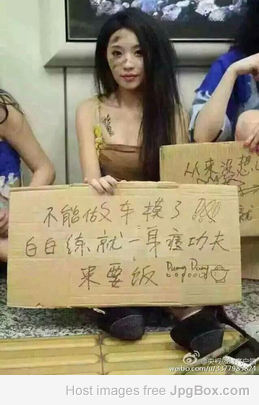 不能做车模了
白白练就一身功夫
来要饭 Duang Duang
从来没想
Host images free JpgBox.com